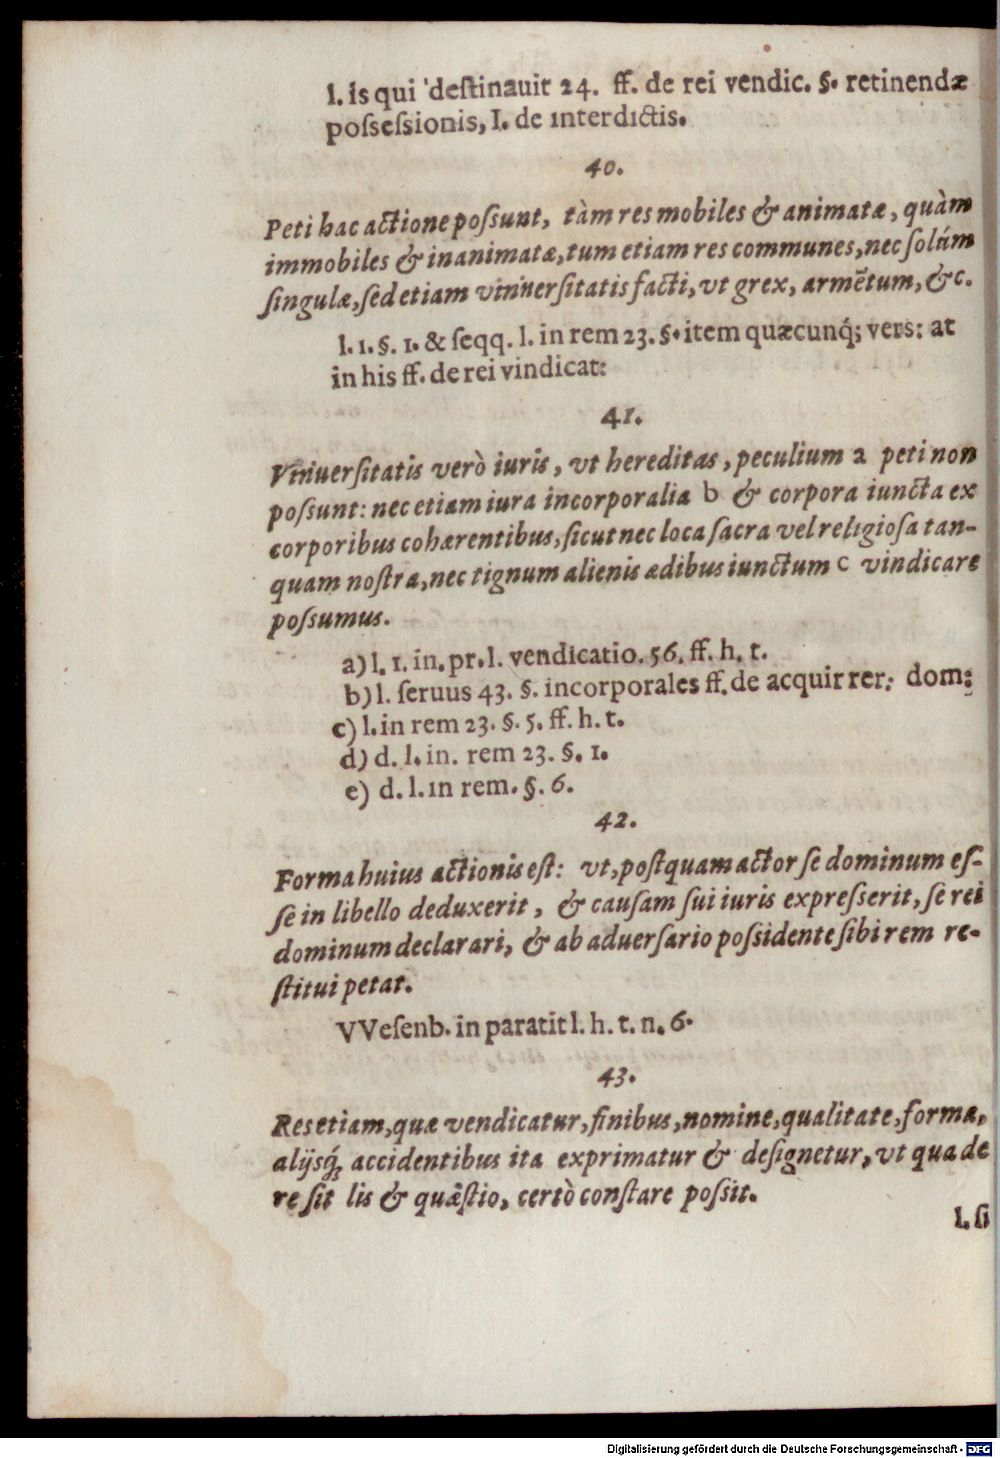 l. Is qui destinauit 24. ff. de rei vendic. §. retinendæ
possessionis, I. de interdictis.
40.
Peti hac actione possunt, tàm res mobiles & animatæ, quàm
immobiles & inanimatæ, tum etiam res communes, nec solúm
singulæ, sed etiam vniuersitatis facti, vt grex, armẽtum, &c.
l. 1. §. 1. & seqq. l. in rem 23. §. item quæcunq́; vers: at
in his ff. de rei vindicat:
41.
Vniuersitatis verò iuris, vt hereditas, peculium a peti non
possunt: nec etiam iura incorporalia b & corpora iuncta ex
corporibus cohærentibus, sicut nec loca sacra vel religiosa tan-
quam nostra, nec tignum alienis ædibus iunctum c vindicare
possumus.
a) l. 1. in. pr. l. vendicatio. 56. ff. h. t.
b) l. seruus 43. §. incorporales ff. de acquir rer: dom:
c) l. in rem 23. §. 5. ff. h. t.
d) d. l. in. rem 23. §. 1.
e) d. l. in rem. §. 6.
42.
Forma huius actionis est: vt, postquam actor se dominum es-
se in libello deduxerit, & causam sui iuris expresserit, se rei
dominum declarari, & ab aduersario possidente sibi rem re-
stitui petat.
VVesenb. in paratitl. h. t. n. 6.
43.
Res etiam, quæ vendicatur, finibus, nomine, qualitate, forma,
alijsq́; accidentibus ita exprimatur & designetur, vt qua de
re sit lis & quæstio, certò constare possit.
l. si
Digitalisierung gefördert durch die Deutsche Forschungsgemeinschaft - DFG